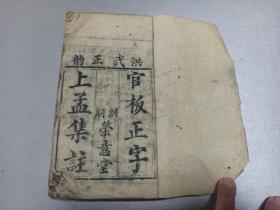 洪武正韵
官板正字
洪洞
榮意堂
上孟集註